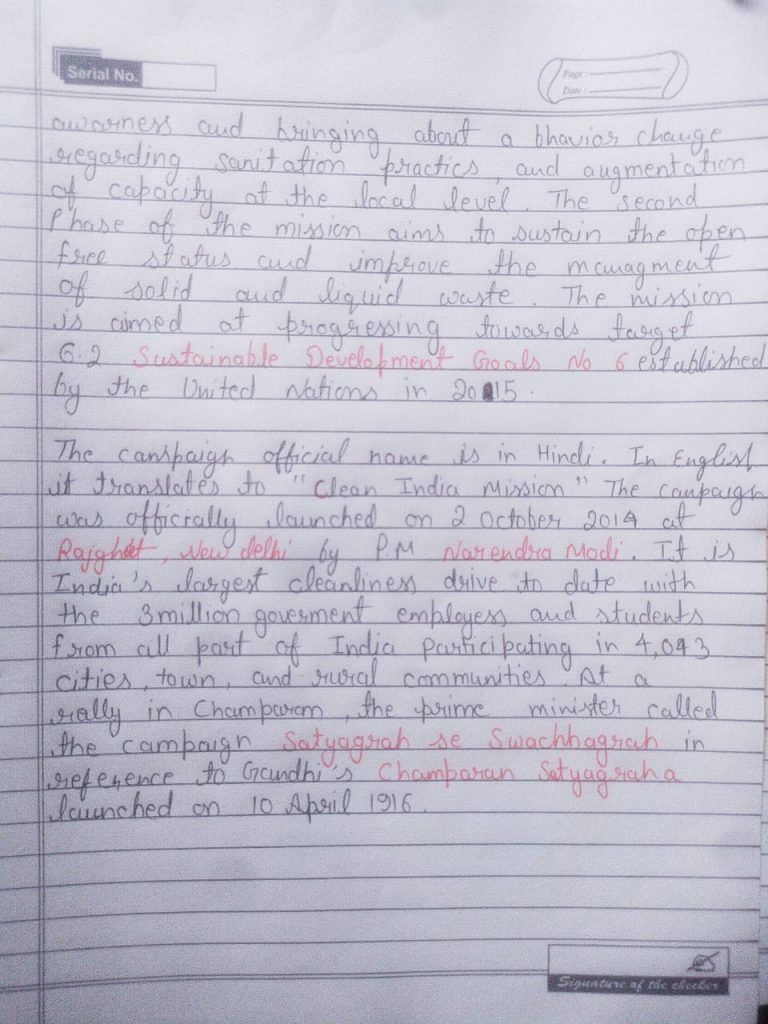 Serial No.
Page :
Date :
awarness and bringing about a bhavior change
regarding sanitation practics, and augmentation
of capacity at the local level. The second
Phase of the mission aims to sustain the open
free status and improve the managment
of solid and liquid waste. The mission
is aimed at progressing towards target
6.2 Sustainable Development Goals No 6 established
by the United Nations in 2015.
The campaign official name is in Hindi. In English
it translates to "Clean India Mission" The campaign
was officially launched on 2 October 2014 at
Rajghat, New delhi by PM Narendra Modi. It is
India's largest cleanliness drive to date with
the 3 million goverment employess and students
from all part of India Participating in 4,043
cities, town, and rural communities. At a
rally in Champaran, the prime minister called
the campaign Satyagrah se Swachhagrah in
reference to Gandhi's Champaran Satyagraha
launched on 10 April 1916.
Signature of the checker